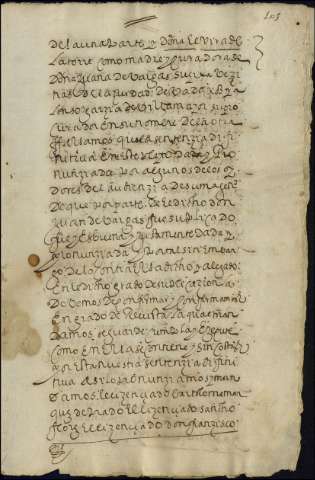 de la una parte y doña elvira de
la torre como madre y curadora de
doña Juana de vargas su hija vezi
nas de la ciudad de badaxoz y a
lonso garzia de villamayor su pro
curador en su nombre de la otra
fallamos que la sentenzia difi
nitiva en este pleito dada y pro
nunziada por algunos de los oy
dores del audienzia de su magestad
de que por parte de el dicho don
Juan de vargas fue suplicado
fue y es buena justamente dada y
pronunziada y por tal sin embar
go de lo contra ella dicho y alegado
en el dicho grado de suplicazion la
devemos de confirmar y confirmamos
en grado de Revista la qual man
damos se guarde cumpla y execute
como en ella se contiene y sin costas
por esta nuestra sentenzia difini
tiva ansi lo pronunziamos y man
damos el lizenziado bartholome mar
quez de prado el lizenziado sancho
flores el lizenziado don franzisco